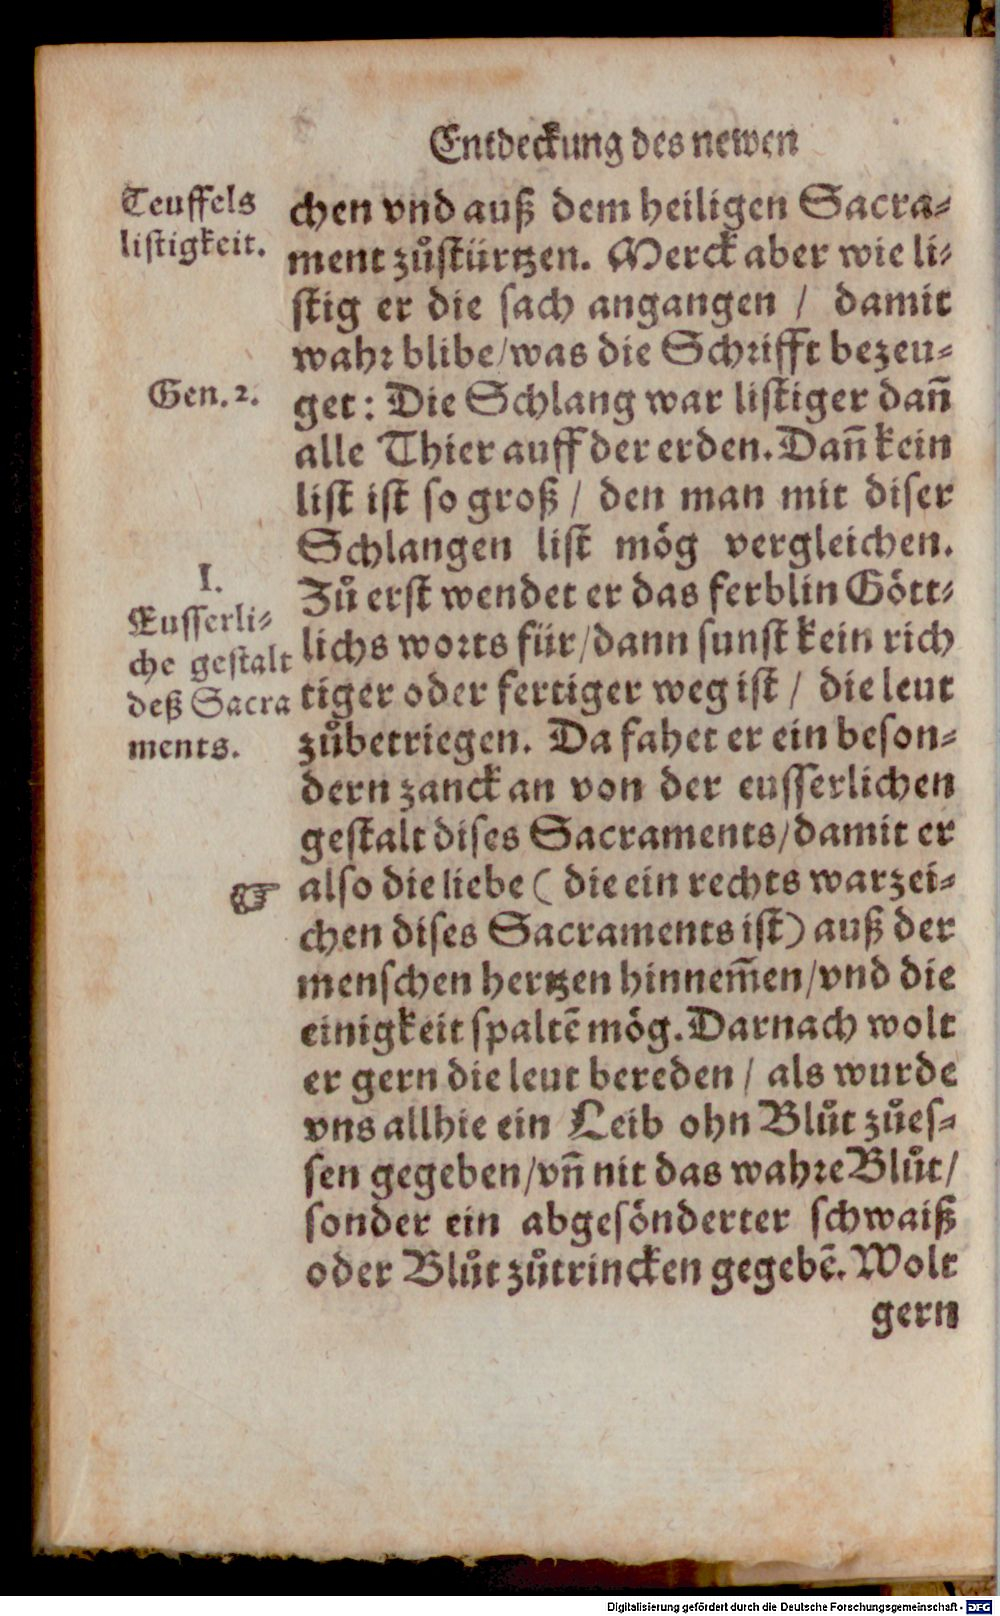 Entdeckung des newen
Teuffels
listigkeit.
chen vnd auß dem heiligen Sacra-
ment zůstürtzen. Merck aber wie li-
stig er die sach angangen / damit
wahr blibe/was die Schrifft bezeu-
Gen. 2.
get: Die Schlang war listiger dañ
alle Thier auff der erden. Dañ kein
list ist so groß / den man mit diser
Schlangen list mög vergleichen.
I.
Eusserli-
che gestalt
deß Sacra
ments.
Zů erst wendet er das ferblin Gött-
lichs worts für/dann sunst kein rich
tiger oder fertiger weg ist / die leut
zůbetriegen. Da fahet er ein beson-
dern zanck an von der eusserlichen
gestalt dises Sacraments/damit er
☞ also die liebe ( die ein rechts warzei-
chen dises Sacraments ist) auß der
menschen hertzen hinnem̃en/vnd die
einigkeit spaltẽ mög. Darnach wolt
er gern die leut bereden / als wurde
vns allhie ein Leib ohn Blůt zůes-
sen gegeben/vñ nit das wahre Blůt/
sonder ein abgesönderter schwaiß
oder Blůt zůtrincken gegebẽ. Wolt
gern
Digitalisierung gefördert durch die Deutsche Forschungsgemeinschaft - DFG